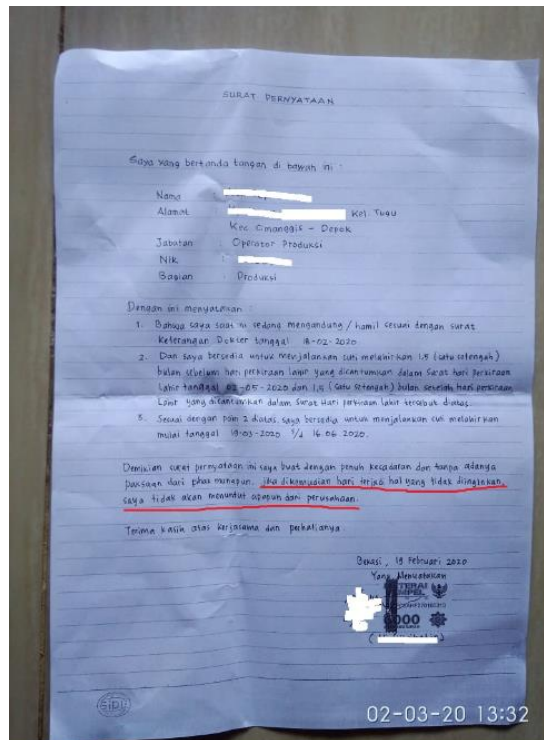 SURAT PERNYATAAN
Saya yang bertanda tangan di bawah ini :
Nama :
Alamat : Kel. Tugu
Kec. Cimanggis - Depok
Jabatan : Operator Produksi
Nik :
Bagian : Produksi
Dengan ini menyatakan :
1. Bahwa saya saat ini sedang mengandung / hamil sesuai dengan surat
Keterangan Dokter tanggal 18-02-2020
2. Dan saya bersedia untuk menjalankan cuti melahirkan 1,5 (satu setengah)
bulan sebelum hari perkiraan lahir yang dicantumkan dalam surat hari perkiraan
Lahir tanggal 02-05-2020 dan 1,5 (satu setengah) bulan setelah hari perkiraan
Lahir yang dicantumkan dalam surat Hari perkiraan lahir tersebut diatas.
3. Sesuai dengan poin 2 diatas saya bersedia untuk menjalankan cuti melahirkan
mulai tanggal 19-03-2020 s/d 16.06.2020.
Demikian surat pernyataan ini saya buat dengan penuh kesadaran dan tanpa adanya
paksaan dari pihak manapun, jika dikemudian hari terjadi hal yang tidak diinginkan,
saya tidak akan menuntut apapun dari perusahaan.
Terima kasih atas kerjasama dan perhatiannya.
Bekasi, 19 Februari 2020
Yang Menyatakan
SIDU
02-03-20 13:32